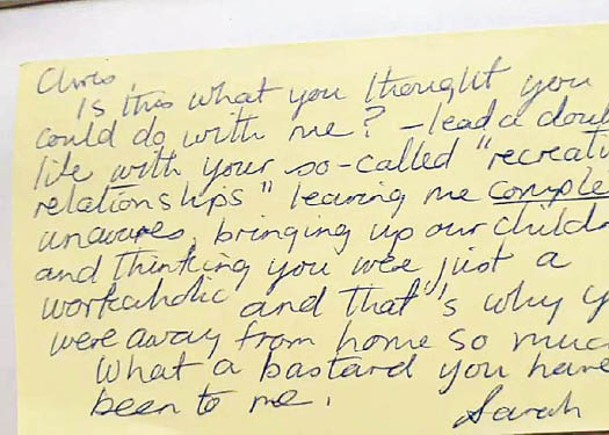 Chris,
Is this what you thought you
could do with me? – lead a doub
life with your so-called "recreati
relationships" leaving me comple
unawares, bringing up our childr
and thinking you were just a
workaholic and that's why y
were away from home so muc
What a bastard you have
been to me.
Sarah